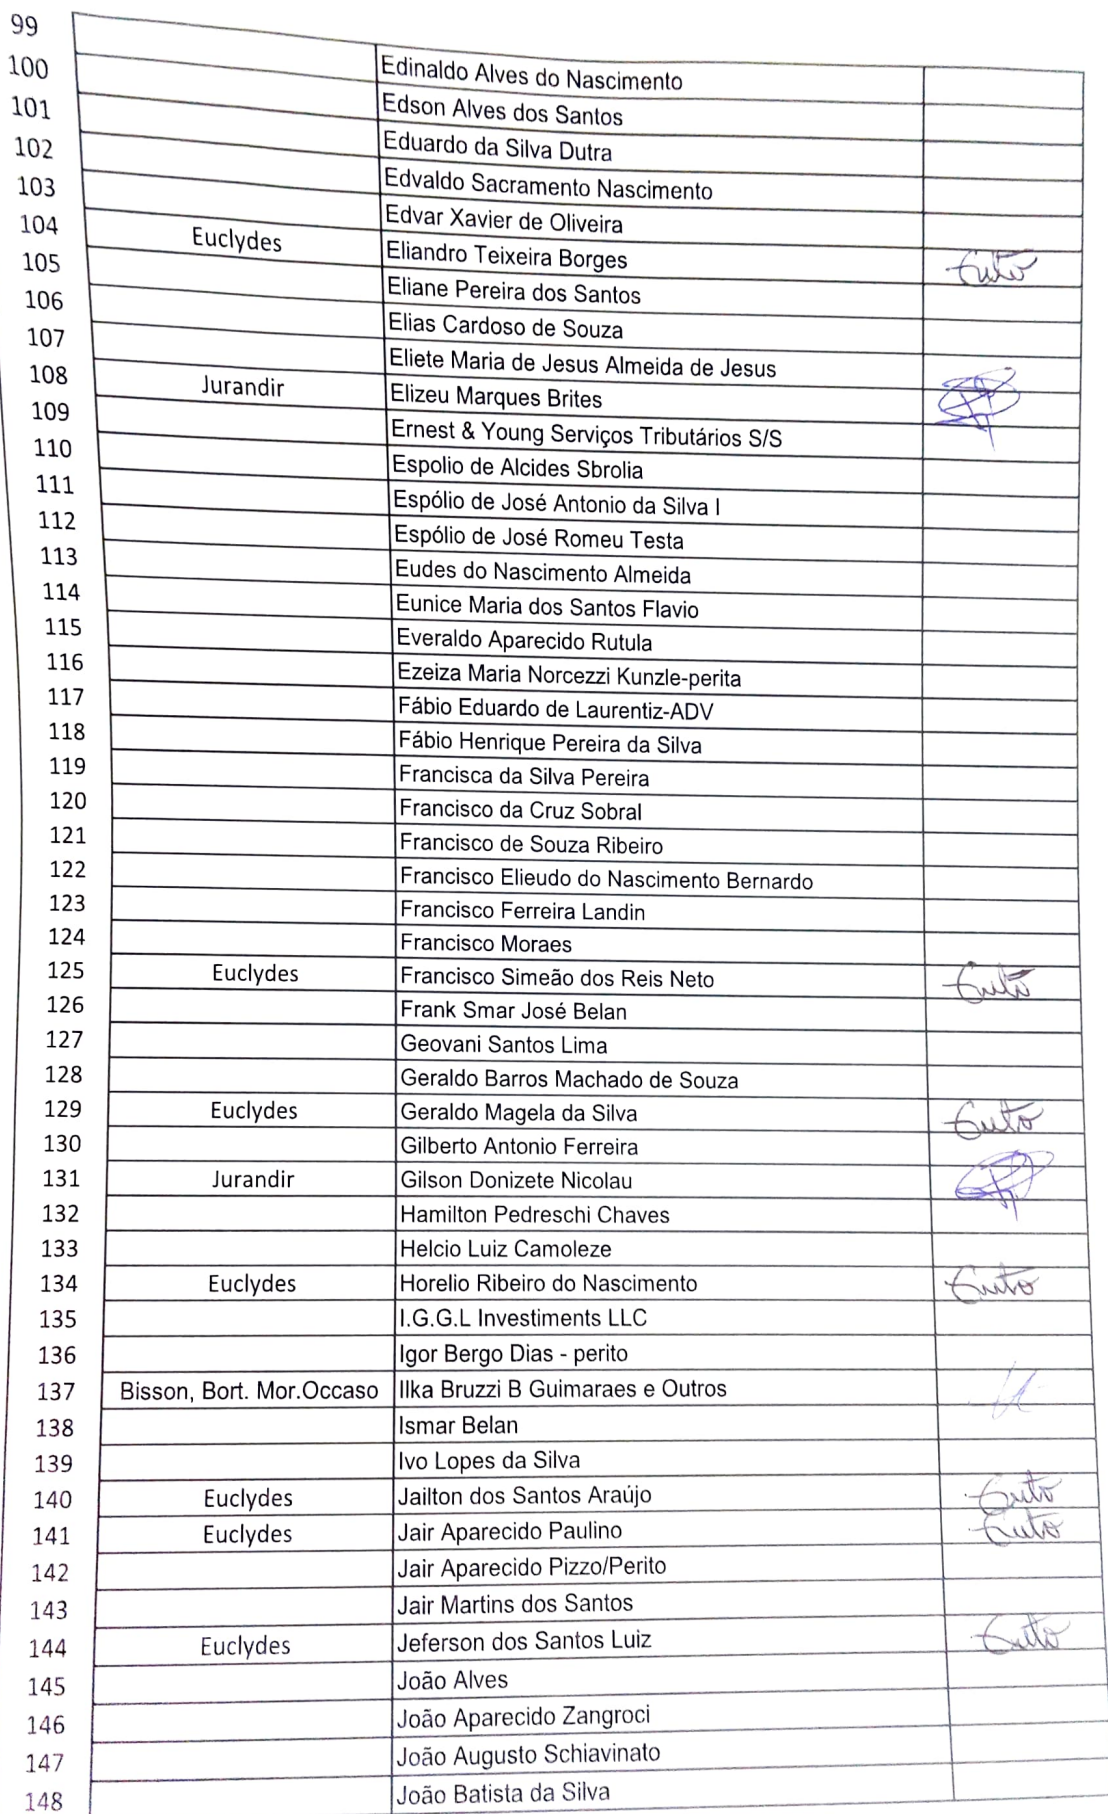 99 Edinaldo Alves do Nascimento
100 Edson Alves dos Santos
101 Eduardo da Silva Dutra
102 Edvaldo Sacramento Nascimento
103 Edvar Xavier de Oliveira
104 Euclydes Eliandro Teixeira Borges
105 Eliane Pereira dos Santos
106 Elias Cardoso de Souza
107 Eliete Maria de Jesus Almeida de Jesus
108 Jurandir Elizeu Marques Brites
109 Ernest & Young Serviços Tributários S/S
110 Espolio de Alcides Sbrolia
111 Espólio de José Antonio da Silva I
112 Espólio de José Romeu Testa
113 Eudes do Nascimento Almeida
114 Eunice Maria dos Santos Flavio
115 Everaldo Aparecido Rutula
116 Ezeiza Maria Norcezzi Kunzle-perita
117 Fábio Eduardo de Laurentiz-ADV
118 Fábio Henrique Pereira da Silva
119 Francisca da Silva Pereira
120 Francisco da Cruz Sobral
121 Francisco de Souza Ribeiro
122 Francisco Elieudo do Nascimento Bernardo
123 Francisco Ferreira Landin
124 Francisco Moraes
125 Euclydes Francisco Simeão dos Reis Neto
126 Frank Smar José Belan
127 Geovani Santos Lima
128 Geraldo Barros Machado de Souza
129 Euclydes Geraldo Magela da Silva
130 Gilberto Antonio Ferreira
131 Jurandir Gilson Donizete Nicolau
132 Hamilton Pedreschi Chaves
133 Helcio Luiz Camoleze
134 Euclydes Horelio Ribeiro do Nascimento
135 I.G.G.L Investiments LLC
136 Igor Bergo Dias - perito
137 Bisson, Bort. Mor.Occaso Ilka Bruzzi B Guimaraes e Outros
138 Ismar Belan
139 Ivo Lopes da Silva
140 Euclydes Jailton dos Santos Araújo
141 Euclydes Jair Aparecido Paulino
142 Jair Aparecido Pizzo/Perito
143 Jair Martins dos Santos
144 Euclydes Jeferson dos Santos Luiz
145 João Alves
146 João Aparecido Zangroci
147 João Augusto Schiavinato
148 João Batista da Silva